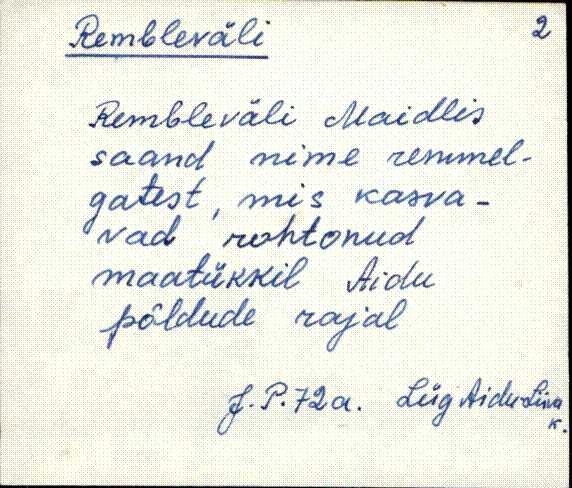 Rembleväli
2
Rembleväli Maidlis
saand nime remmel-
gatest, mis kasva-
vad rohtonud
maatükkil Aidu
põldude rajal
J. P. 72 a. Lüg Aidu-Liiva
k.